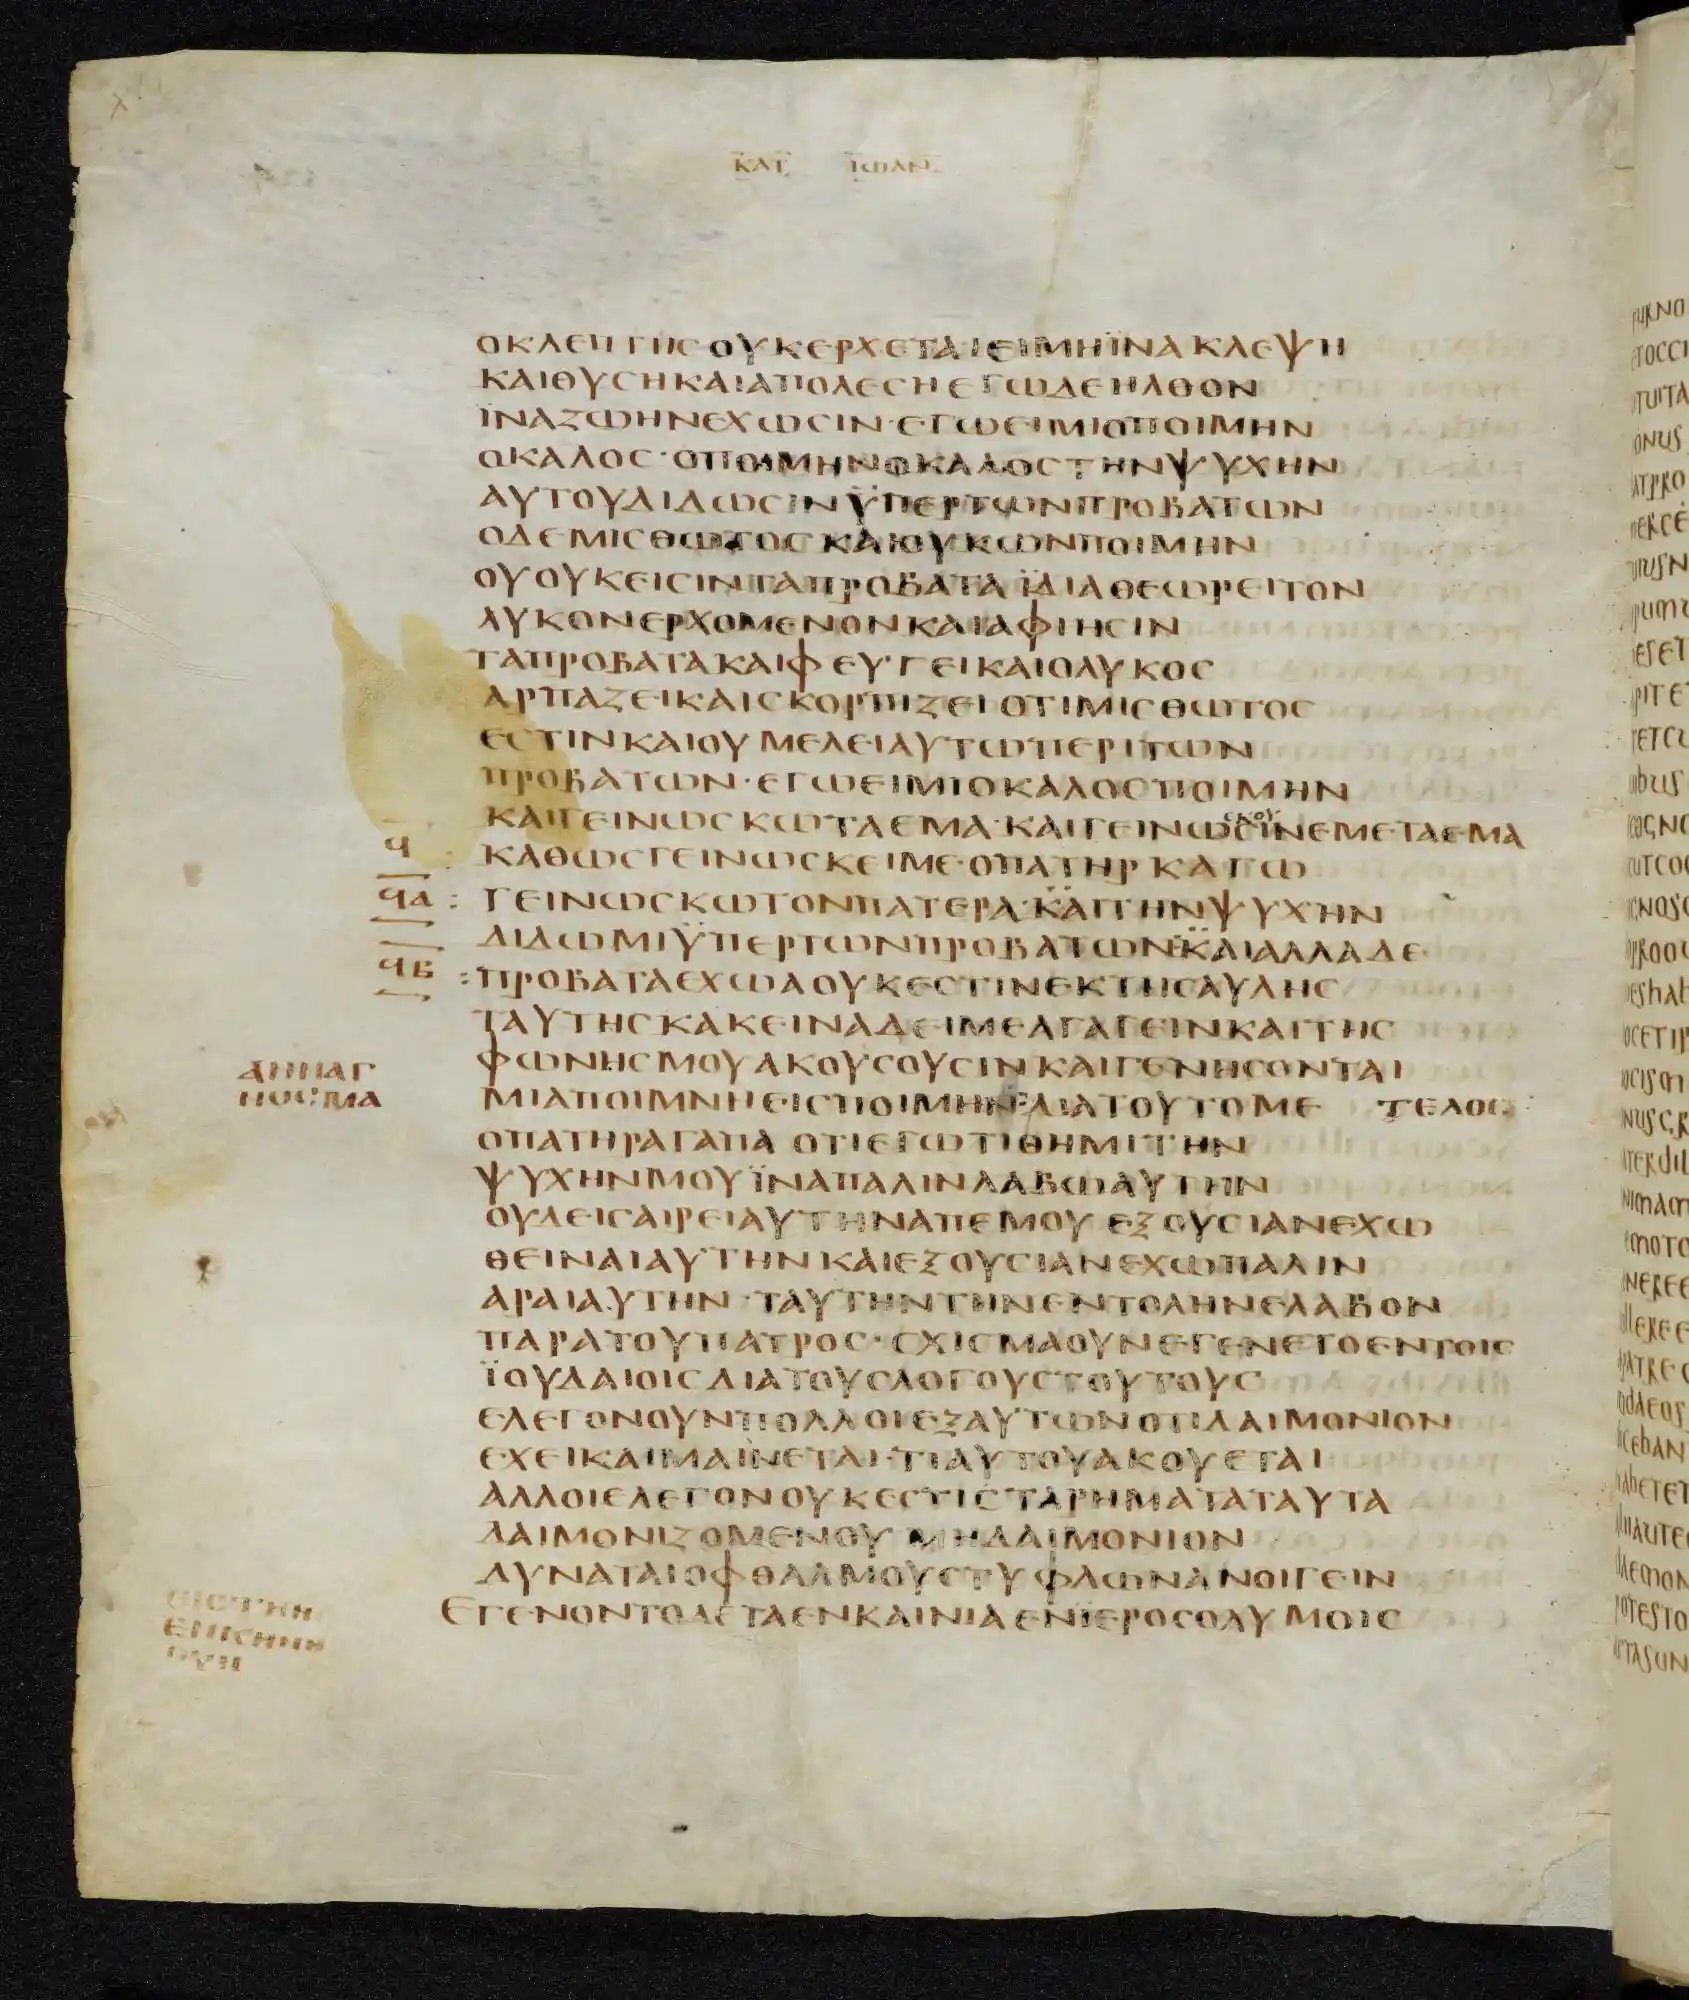 ΚΑΤ ΙΩΑΝ
ΟΚΛΕΠΤΗΣΟΥΚΕΡΧΕΤΑΙΕΙΜΗΪΝΑΚΛΕΨΗ
ΚΑΙΘΥΣΗΚΑΙΑΠΟΛΕΣΗΕΓΩΔΕΗΛΘΟΝ
ΪΝΑΖΩΗΝΕΧΩΣΙΝ·ΕΓΩΕΙΜΙΟΠΟΙΜΗΝ
ΟΚΑΛΟΣ·ΟΠΟΙΜΗΝΟΚΑΛΟΣΤΗΝΨΥΧΗΝ
ΑΥΤΟΥΔΙΔΩΣΙΝΫΠΕΡΤΩΝΠΡΟΒΑΤΩΝ
ΟΔΕΜΙΣΘΩΤΟΣΚΑΙΟΥΚΩΝΠΟΙΜΗΝ
ΟΥΟΥΚΕΙΣΙΝΤΑΠΡΟΒΑΤΑΪΔΙΑΘΕΩΡΕΙΤΟΝ
ΛΥΚΟΝΕΡΧΟΜΕΝΟΝΚΑΙΑΦΙΗΣΙΝ
ΤΑΠΡΟΒΑΤΑΚΑΙΦΕΥΓΕΙΚΑΙΟΛΥΚΟΣ
ΑΡΠΑΖΕΙΚΑΙΣΚΟΡΠΙΖΕΙΟΤΙΜΙΣΘΩΤΟΣ
ΕΣΤΙΝΚΑΙΟΥΜΕΛΕΙΑΥΤΩΠΕΡΙΤΩΝ
ΠΡΟΒΑΤΩΝ·ΕΓΩΕΙΜΙΟΚΑΛΟΣΠΟΙΜΗΝ
ΚΑΙΓΕΙΝΩΣΚΩΤΑΕΜΑ·ΚΑΙΓΕΙΝΩΣΙΝΕΜΕΤΑΕΜΑ
Ϥ ΚΑΘΩΣΓΕΙΝΩΣΚΕΙΜΕ·ΟΠΑΤΗΡΚΑΓΩ
ϤΑ : ΓΕΙΝΩΣΚΩΤΟΝΠΑΤΕΡΑ·ΚΑΙΤΗΝΨΥΧΗΝ
ΔΙΔΩΜΙΫΠΕΡΤΩΝΠΡΟΒΑΤΩΝΚΑΙΑΛΛΑΔΕ
ϤΒ : ΠΡΟΒΑΤΑΕΧΩΑΟΥΚΕΣΤΙΝΕΚΤΗΣΑΥΛΗΣ
ΤΑΥΤΗΣΚΑΚΕΙΝΑΔΕΙΜΕΑΓΑΓΕΙΝΚΑΙΤΗΣ
ΦΩΝΗΣΜΟΥΑΚΟΥΣΟΥΣΙΝΚΑΙΓΕΝΗΣΟΝΤΑΙ
ΑΝΝΑΓ
ΝΟΣΜΑ
ΜΙΑΠΟΙΜΝΗΕΙΣΠΟΙΜΗΝΔΙΑΤΟΥΤΟΜΕ ΤΕΛΟΣ
ΟΠΑΤΗΡΑΓΑΠΑ ΟΤΙΕΓΩΤΙΘΗΜΙΤΗΝ
ΨΥΧΗΝΜΟΥΪΝΑΠΑΛΙΝΛΑΒΩΑΥΤΗΝ
ΟΥΔΕΙΣΑΙΡΕΙΑΥΤΗΝΑΠΕΜΟΥ ΕΞΟΥΣΙΑΝΕΧΩ
ΘΕΙΝΑΙΑΥΤΗΝΚΑΙΕΞΟΥΣΙΑΝΕΧΩΠΑΛΙΝ
ΑΡΑΙΑΥΤΗΝ·ΤΑΥΤΗΝΤΗΝΕΝΤΟΛΗΝΕΛΑΒΟΝ
ΠΑΡΑΤΟΥΠΑΤΡΟΣ·ΣΧΙΣΜΑΟΥΝΕΓΕΝΕΤΟΕΝΤΟΙΣ
ΪΟΥΔΑΙΟΙΣΔΙΑΤΟΥΣΛΟΓΟΥΣΤΟΥΤΟΥΣ
ΕΛΕΓΟΝΟΥΝΠΟΛΛΟΙΕΞΑΥΤΩΝΟΤΙΔΑΙΜΟΝΙΟΝ
ΕΧΕΙΚΑΙΜΑΙΝΕΤΑΙ·ΤΙΑΥΤΟΥΑΚΟΥΕΤΑΙ
ΑΛΛΟΙΕΛΕΓΟΝΟΥΚΕΣΤΙΣΤΑΡΗΜΑΤΑΤΑΥΤΑ
ΔΑΙΜΟΝΙΖΟΜΕΝΟΥ ΜΗΔΑΙΜΟΝΙΟΝ
ΔΥΝΑΤΑΙΟΦΘΑΛΜΟΥΣΤΥΦΛΩΝΑΝΟΙΓΕΙΝ
ΕΓΕΝΟΝΤΟΔΕΤΑΕΝΚΑΙΝΙΑΕΝΪΕΡΟΣΟΛΥΜΟΙΣ